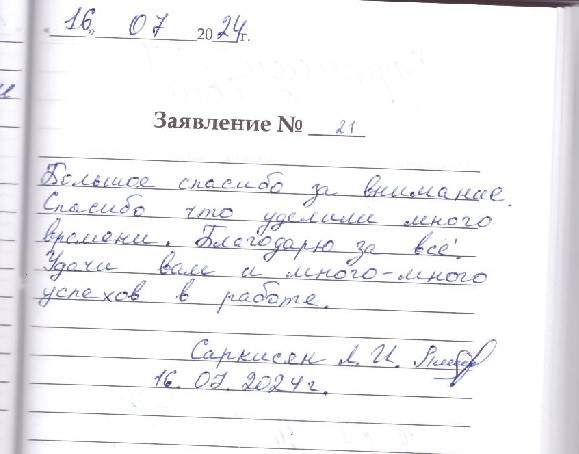 16 07 2024г.
Заявление № 21
Большое спасибо за внимание.
Спасибо что уделили много
времени. Благодарю за всё!
Удачи вам и много-много
успехов в работе.
Саркисен А. И.
16. 07. 2024г.